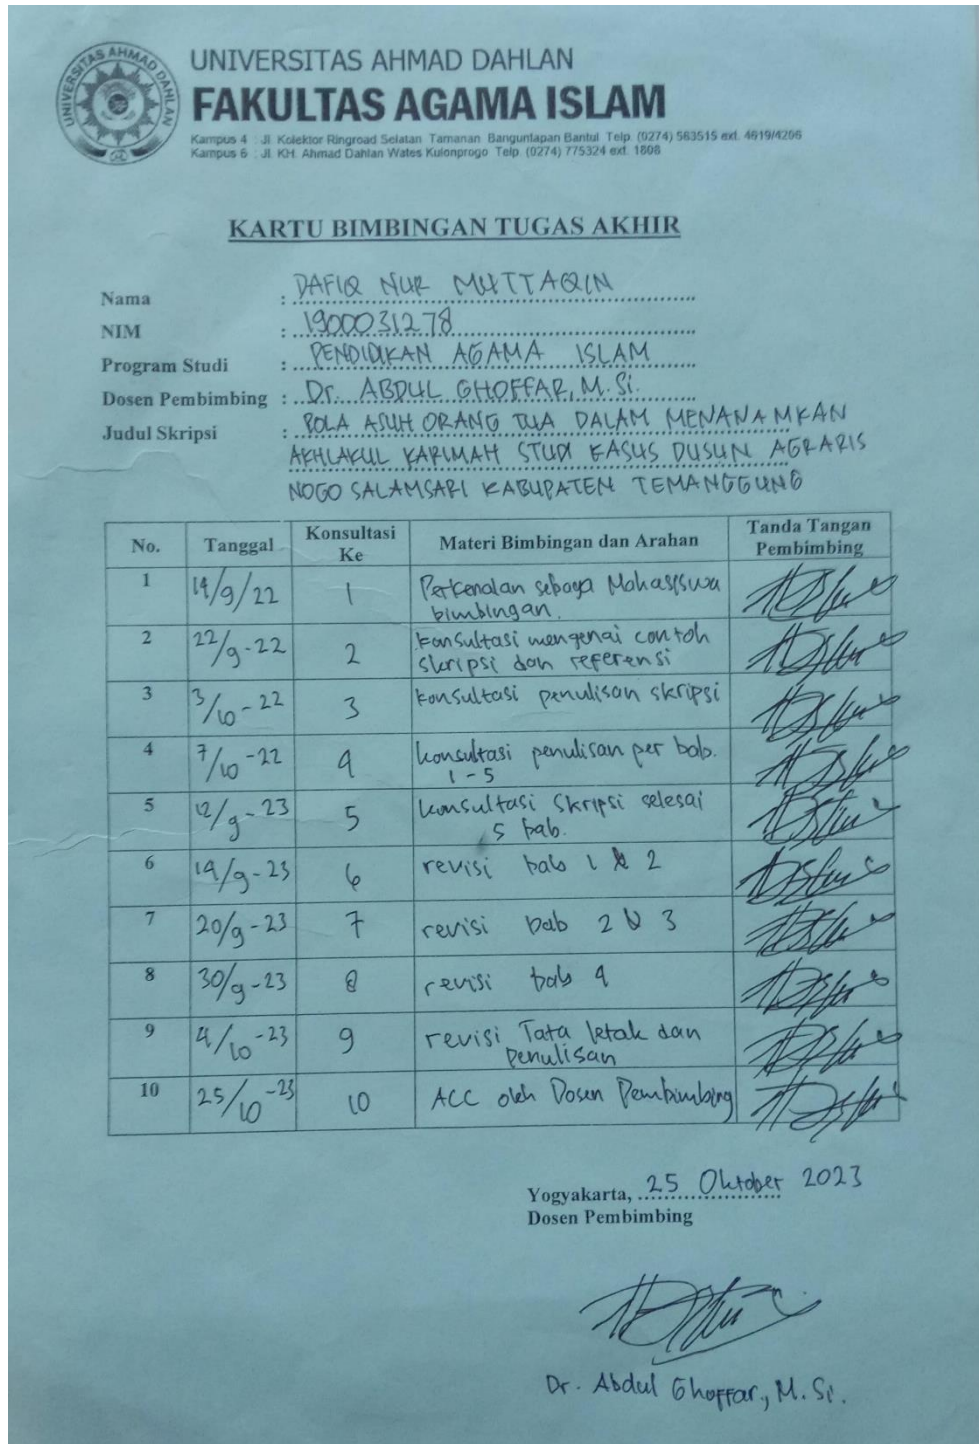 UNIVERSITAS AHMAD DAHLAN
UNIVERSITAS AHMAD DAHLAN
FAKULTAS AGAMA ISLAM
Kampus 4 : Jl. Kolektor Ringroad Selatan Tamanan Banguntapan Bantul Telp. (0274) 563515 ext. 4619/4206
Kampus 6 : Jl. KH. Ahmad Dahlan Wates Kulonprogo Telp. (0274) 775324 ext. 1808
KARTU BIMBINGAN TUGAS AKHIR
Nama : DAFIQ NUR MUTTAQIN
NIM : 1900031278
Program Studi : PENDIDIKAN AGAMA ISLAM
Dosen Pembimbing : Dr. ABDUL GHOFFAR, M. Si.
Judul Skripsi : POLA ASUH ORANG TUA DALAM MENANAMKAN
AKHLAKUL KARIMAH STUDI KASUS DUSUN AGRARIS
NOGO SALAMSARI KABUPATEN TEMANGGUNG
No. Tanggal Konsultasi Ke Materi Bimbingan dan Arahan Tanda Tangan Pembimbing
1 14/9/22 1 Perkenalan sebaga Mahasiswa
bimbingan.
2 22/9-22 2 konsultasi mengenai contoh
skripsi dan referensi
3 3/10-22 3 konsultasi penulisan skripsi
4 7/10-22 4 konsultasi penulisan per bab.
1-5
5 12/9-23 5 konsultasi skripsi selesai
5 bab.
6 19/9-23 6 revisi bab 1 & 2
7 20/9-23 7 revisi bab 2 & 3
8 30/9-23 8 revisi bab 4
9 4/10-23 9 revisi Tata letak dan
Penulisan
10 25/10-23 10 ACC oleh Dosen Pembimbing
Yogyakarta, 25 Oktober 2023
Dosen Pembimbing
Dr. Abdul Ghoffar, M. Si.